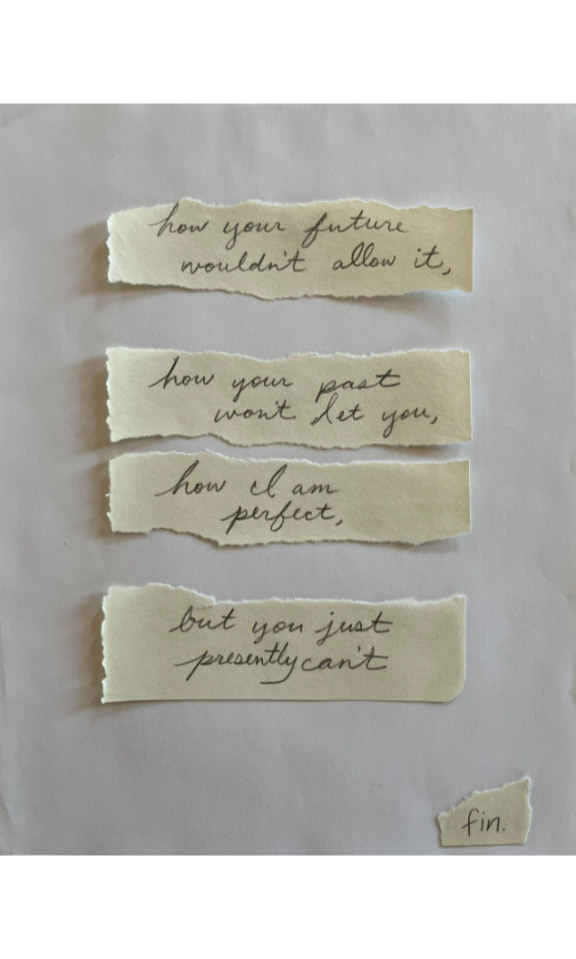 how your future
wouldn't allow it,
how your past
won't let you,
how I am
perfect,
but you just
presently can't
fin.